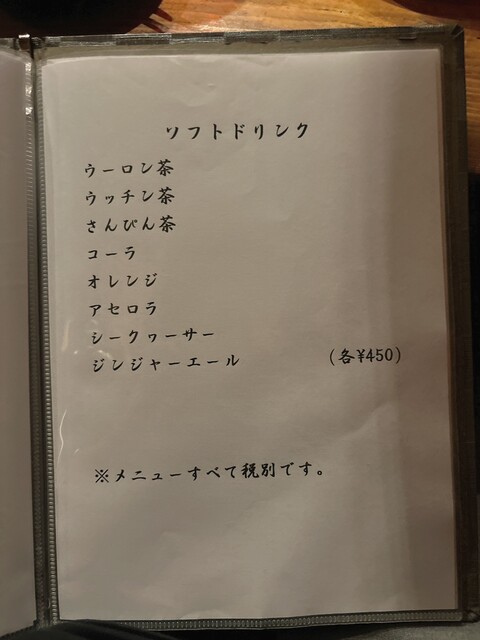 ソフトドリンク
ウーロン茶
ウッチン茶
さんぴん茶
コーラ
オレンジ
アセロラ
シークヮーサー
ジンジャーエール (各¥450)
※メニューすべて税別です。